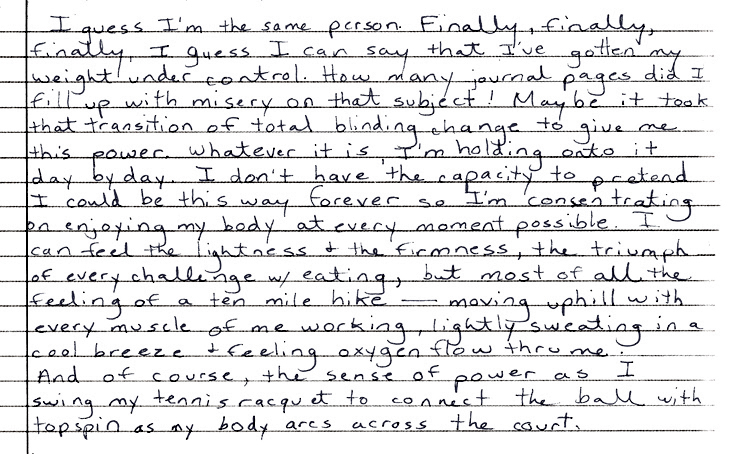 I guess I'm the same person. Finally, finally,
finally, I guess I can say that I've gotten my
weight under control. How many journal pages did I
fill up with misery on that subject! Maybe it took
that transition of total blinding change to give me
this power. Whatever it is, I'm holding onto it
day by day. I don't have the capacity to pretend
I could be this way forever so I'm consentrating
on enjoying my body at every moment possible. I
can feel the lightness & the firmness, the triumph
of every challenge w/ eating, but most of all the
feeling of a ten mile hike — moving uphill with
every muscle of me working, lightly sweating in a
cool breeze & feeling oxygen flow thru me.
And of course, the sense of power as I
swing my tennis racquet to connect the ball with
topspin as my body arcs across the court.